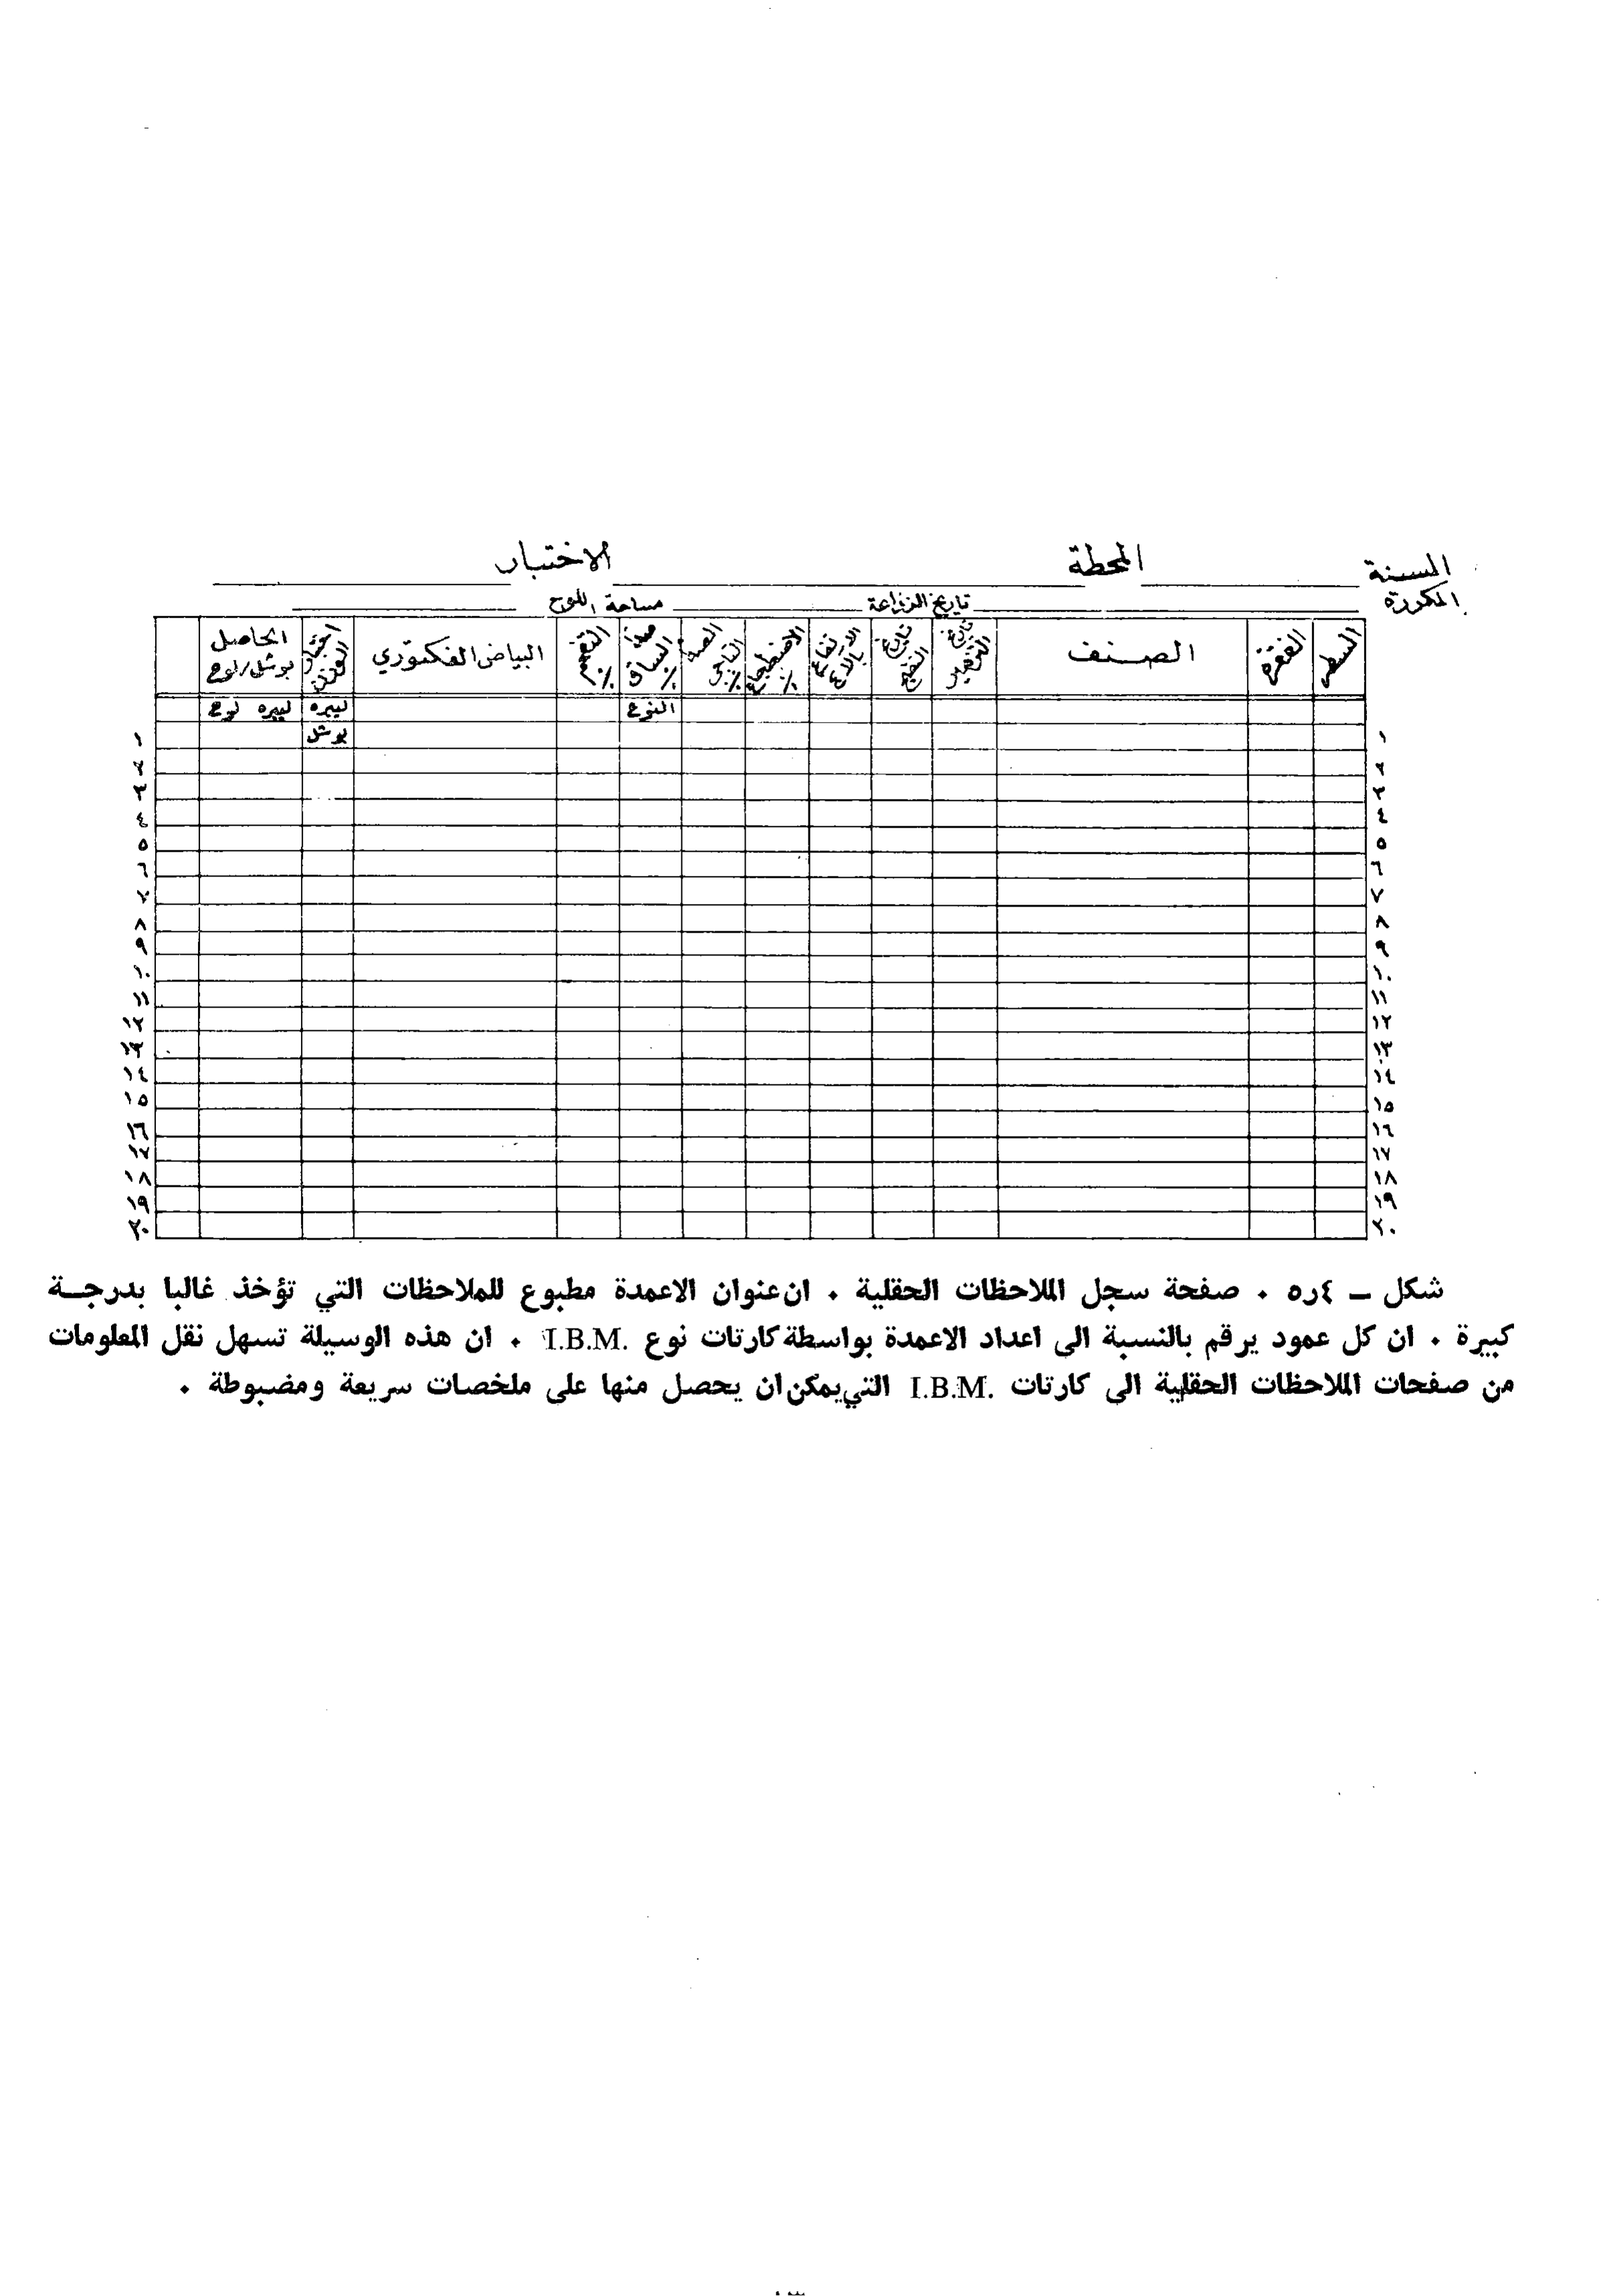 السنة المحطة الاختبار
المكررة تاريخ الزراعة مساحة اللوح
السطر الفقرة الصنف تاريخ التزهير تاريخ النضج الارتفاع الاضطجاع ٪ الصدأ التاجي ٪ صدأ الساق ٪ التفحم ٪ البياض الفكتوري اختبار الوزن الحاصل بوشل/لوح
النوع ليبره ليبره لوح
بوشل
١ ١
٢ ٢
٣ ٣
٤ ٤
٥ ٥
٦ ٦
٧ ٧
٨ ٨
٩ ٩
١٠ ١٠
١١ ١١
١٢ ١٢
١٣ ١٣
١٤ ١٤
١٥ ١٥
١٦ ١٦
١٧ ١٧
١٨ ١٨
١٩ ١٩
٢٠ ٢٠
شكل – ٤ر٥ . صفحة سجل الملاحظات الحقلية . ان عنوان الاعمدة مطبوع للملاحظات التي تؤخذ غالبا بدرجة
كبيرة . ان كل عمود يرقم بالنسبة الى اعداد الاعمدة بواسطة كارتات نوع I.B.M. . ان هذه الوسيلة تسهل نقل المعلومات
من صفحات الملاحظات الحقلية الى كارتات I.B.M. التي يمكن ان يحصل منها على ملخصات سريعة ومضبوطة .